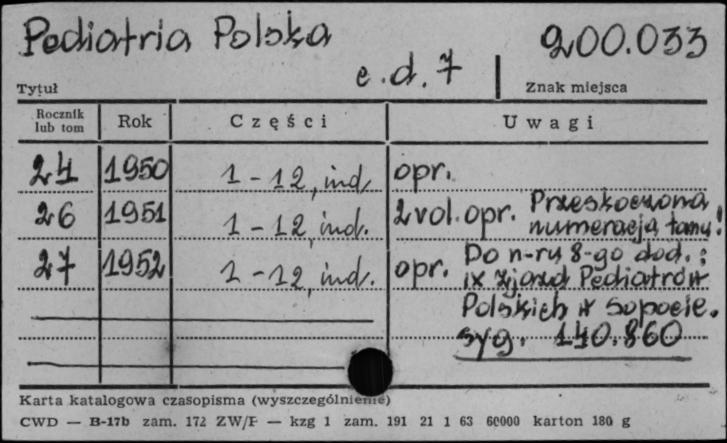 Pediatria Polska 200.033
c.d. 7
Tytuł Znak miejsca
Rocznik lub tom Rok Części Uwagi
24 1950 1-12, ind. opr.
26 1951 1-12, ind. 2 vol. opr. Przeskoczona numeracja tomu!
27 1952 1-12, ind. opr. Do n-ru 8-go dod.:
IX Zjazd Pediatrów
Polskich w Sopocie.
syg. 140.860
Karta katalogowa czasopisma (wyszczególnienie)
CWD — B-17b zam. 172 ZW/F — kzg 1 zam. 191 21 1 63 60000 karton 180 g